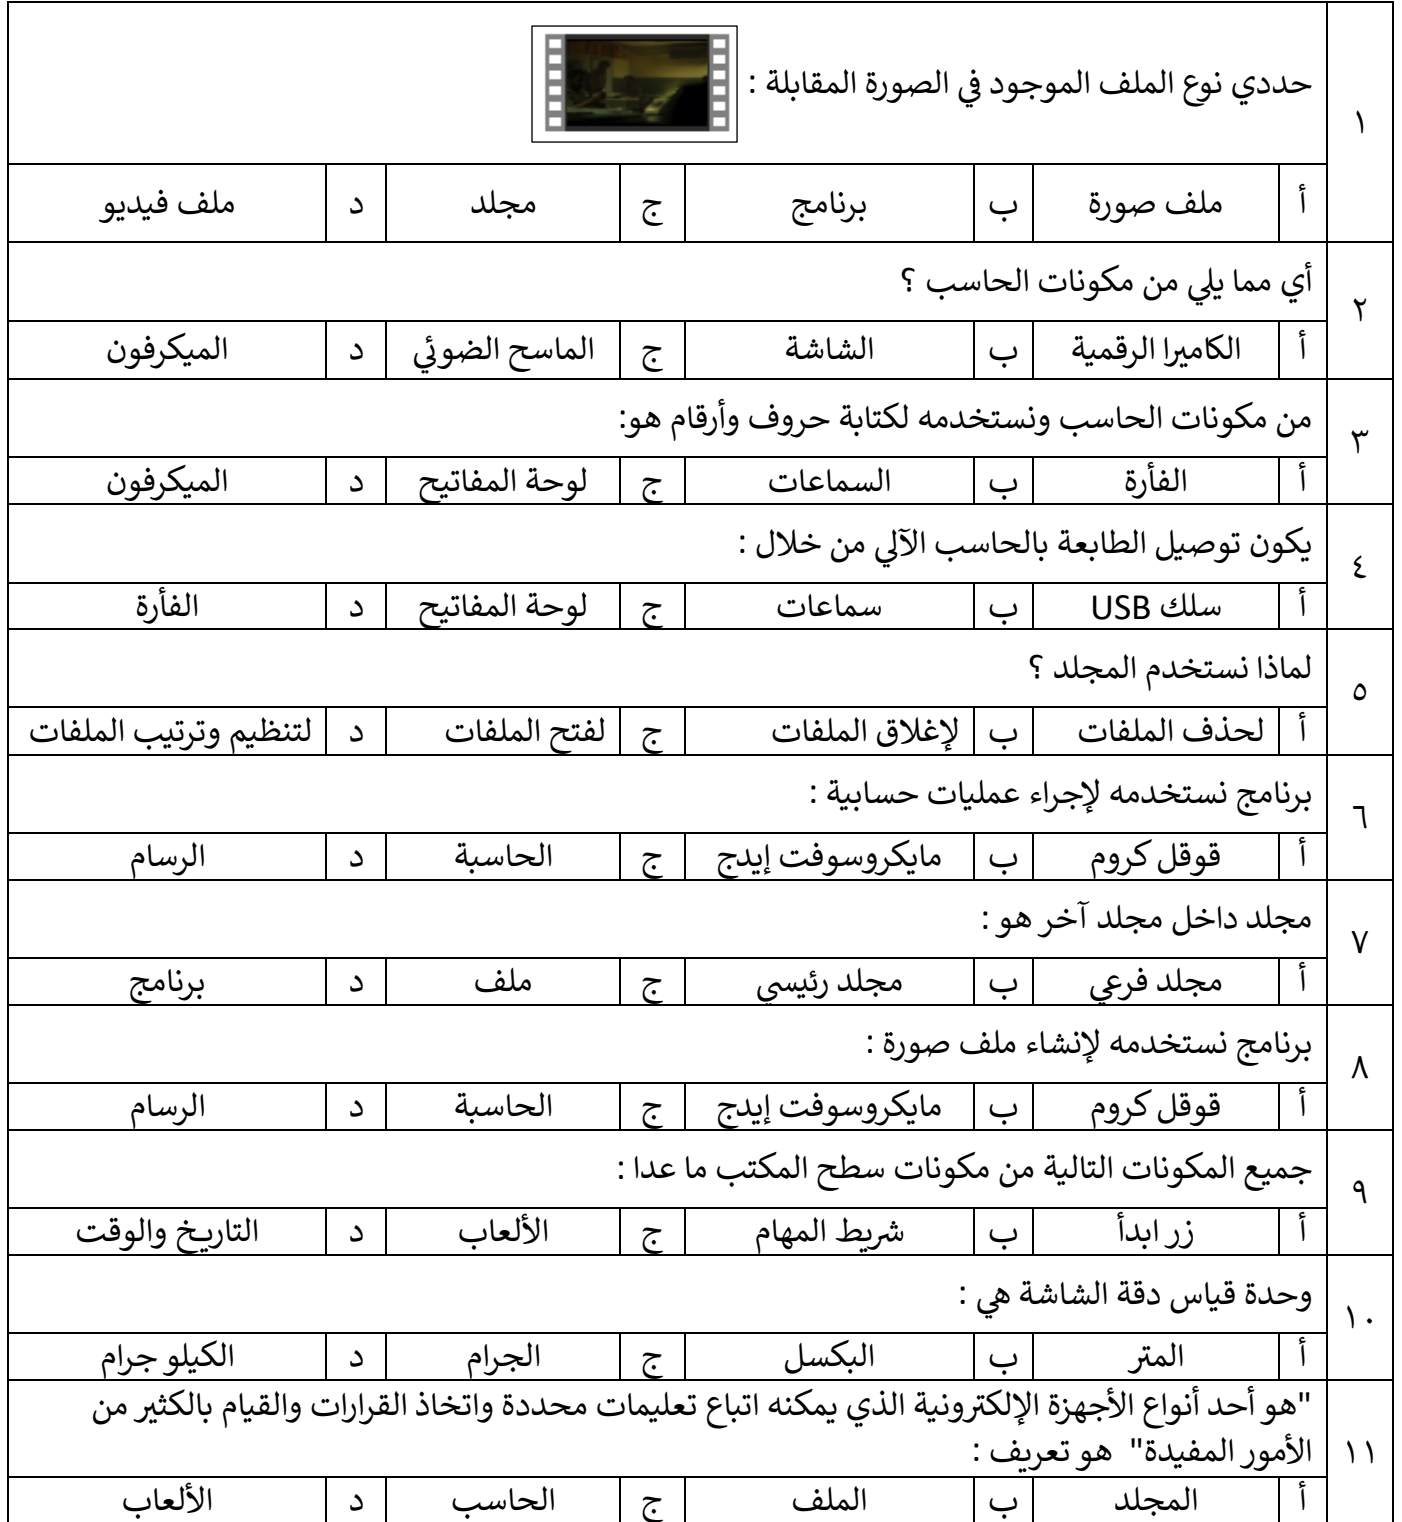 ١
حددي نوع الملف الموجود في الصورة المقابلة :
أ ملف صورة ب برنامج ج مجلد د ملف فيديو
٢
أي مما يلي من مكونات الحاسب ؟
أ الكاميرا الرقمية ب الشاشة ج الماسح الضوئي د الميكرفون
٣
من مكونات الحاسب ونستخدمه لكتابة حروف وأرقام هو:
أ الفأرة ب السماعات ج لوحة المفاتيح د الميكرفون
٤
يكون توصيل الطابعة بالحاسب الآلي من خلال :
أ سلك USB ب سماعات ج لوحة المفاتيح د الفأرة
٥
لماذا نستخدم المجلد ؟
أ لحذف الملفات ب لإغلاق الملفات ج لفتح الملفات د لتنظيم وترتيب الملفات
٦
برنامج نستخدمه لإجراء عمليات حسابية :
أ قوقل كروم ب مايكروسوفت إيدج ج الحاسبة د الرسام
٧
مجلد داخل مجلد آخر هو :
أ مجلد فرعي ب مجلد رئيسي ج ملف د برنامج
٨
برنامج نستخدمه لإنشاء ملف صورة :
أ قوقل كروم ب مايكروسوفت إيدج ج الحاسبة د الرسام
٩
جميع المكونات التالية من مكونات سطح المكتب ما عدا :
أ زر ابدأ ب شريط المهام ج الألعاب د التاريخ والوقت
١٠
وحدة قياس دقة الشاشة هي :
أ المتر ب البكسل ج الجرام د الكيلو جرام
١١
"هو أحد أنواع الأجهزة الإلكترونية الذي يمكنه اتباع تعليمات محددة واتخاذ القرارات والقيام بالكثير من
الأمور المفيدة" هو تعريف :
أ المجلد ب الملف ج الحاسب د الألعاب